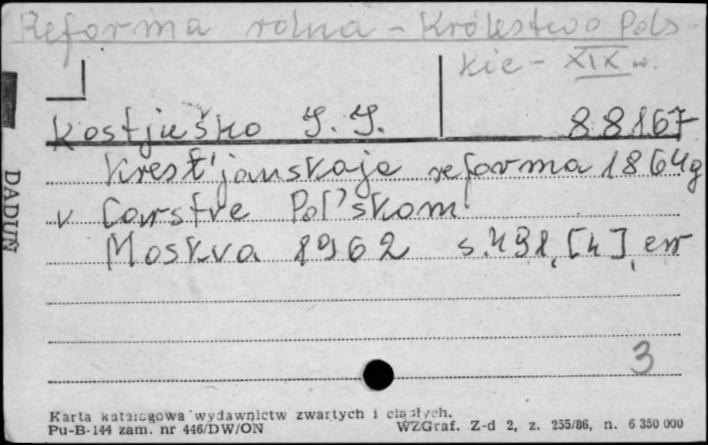 Reforma rolna - Królestwo Pols-
kie - XIX w.
Kostjuško I. I. 88167
Krest'janskaja reforma 1864g
v Carstve Pol'skom
Moskva 1962 s. 491, [4], err
3
DADUŃ
Karta katalogowa wydawnictw zwartych i ciągłych.
Pu-B-144 zam. nr 446/DW/ON WZGraf. Z-d 2, z. 255/86, n. 6 350 000